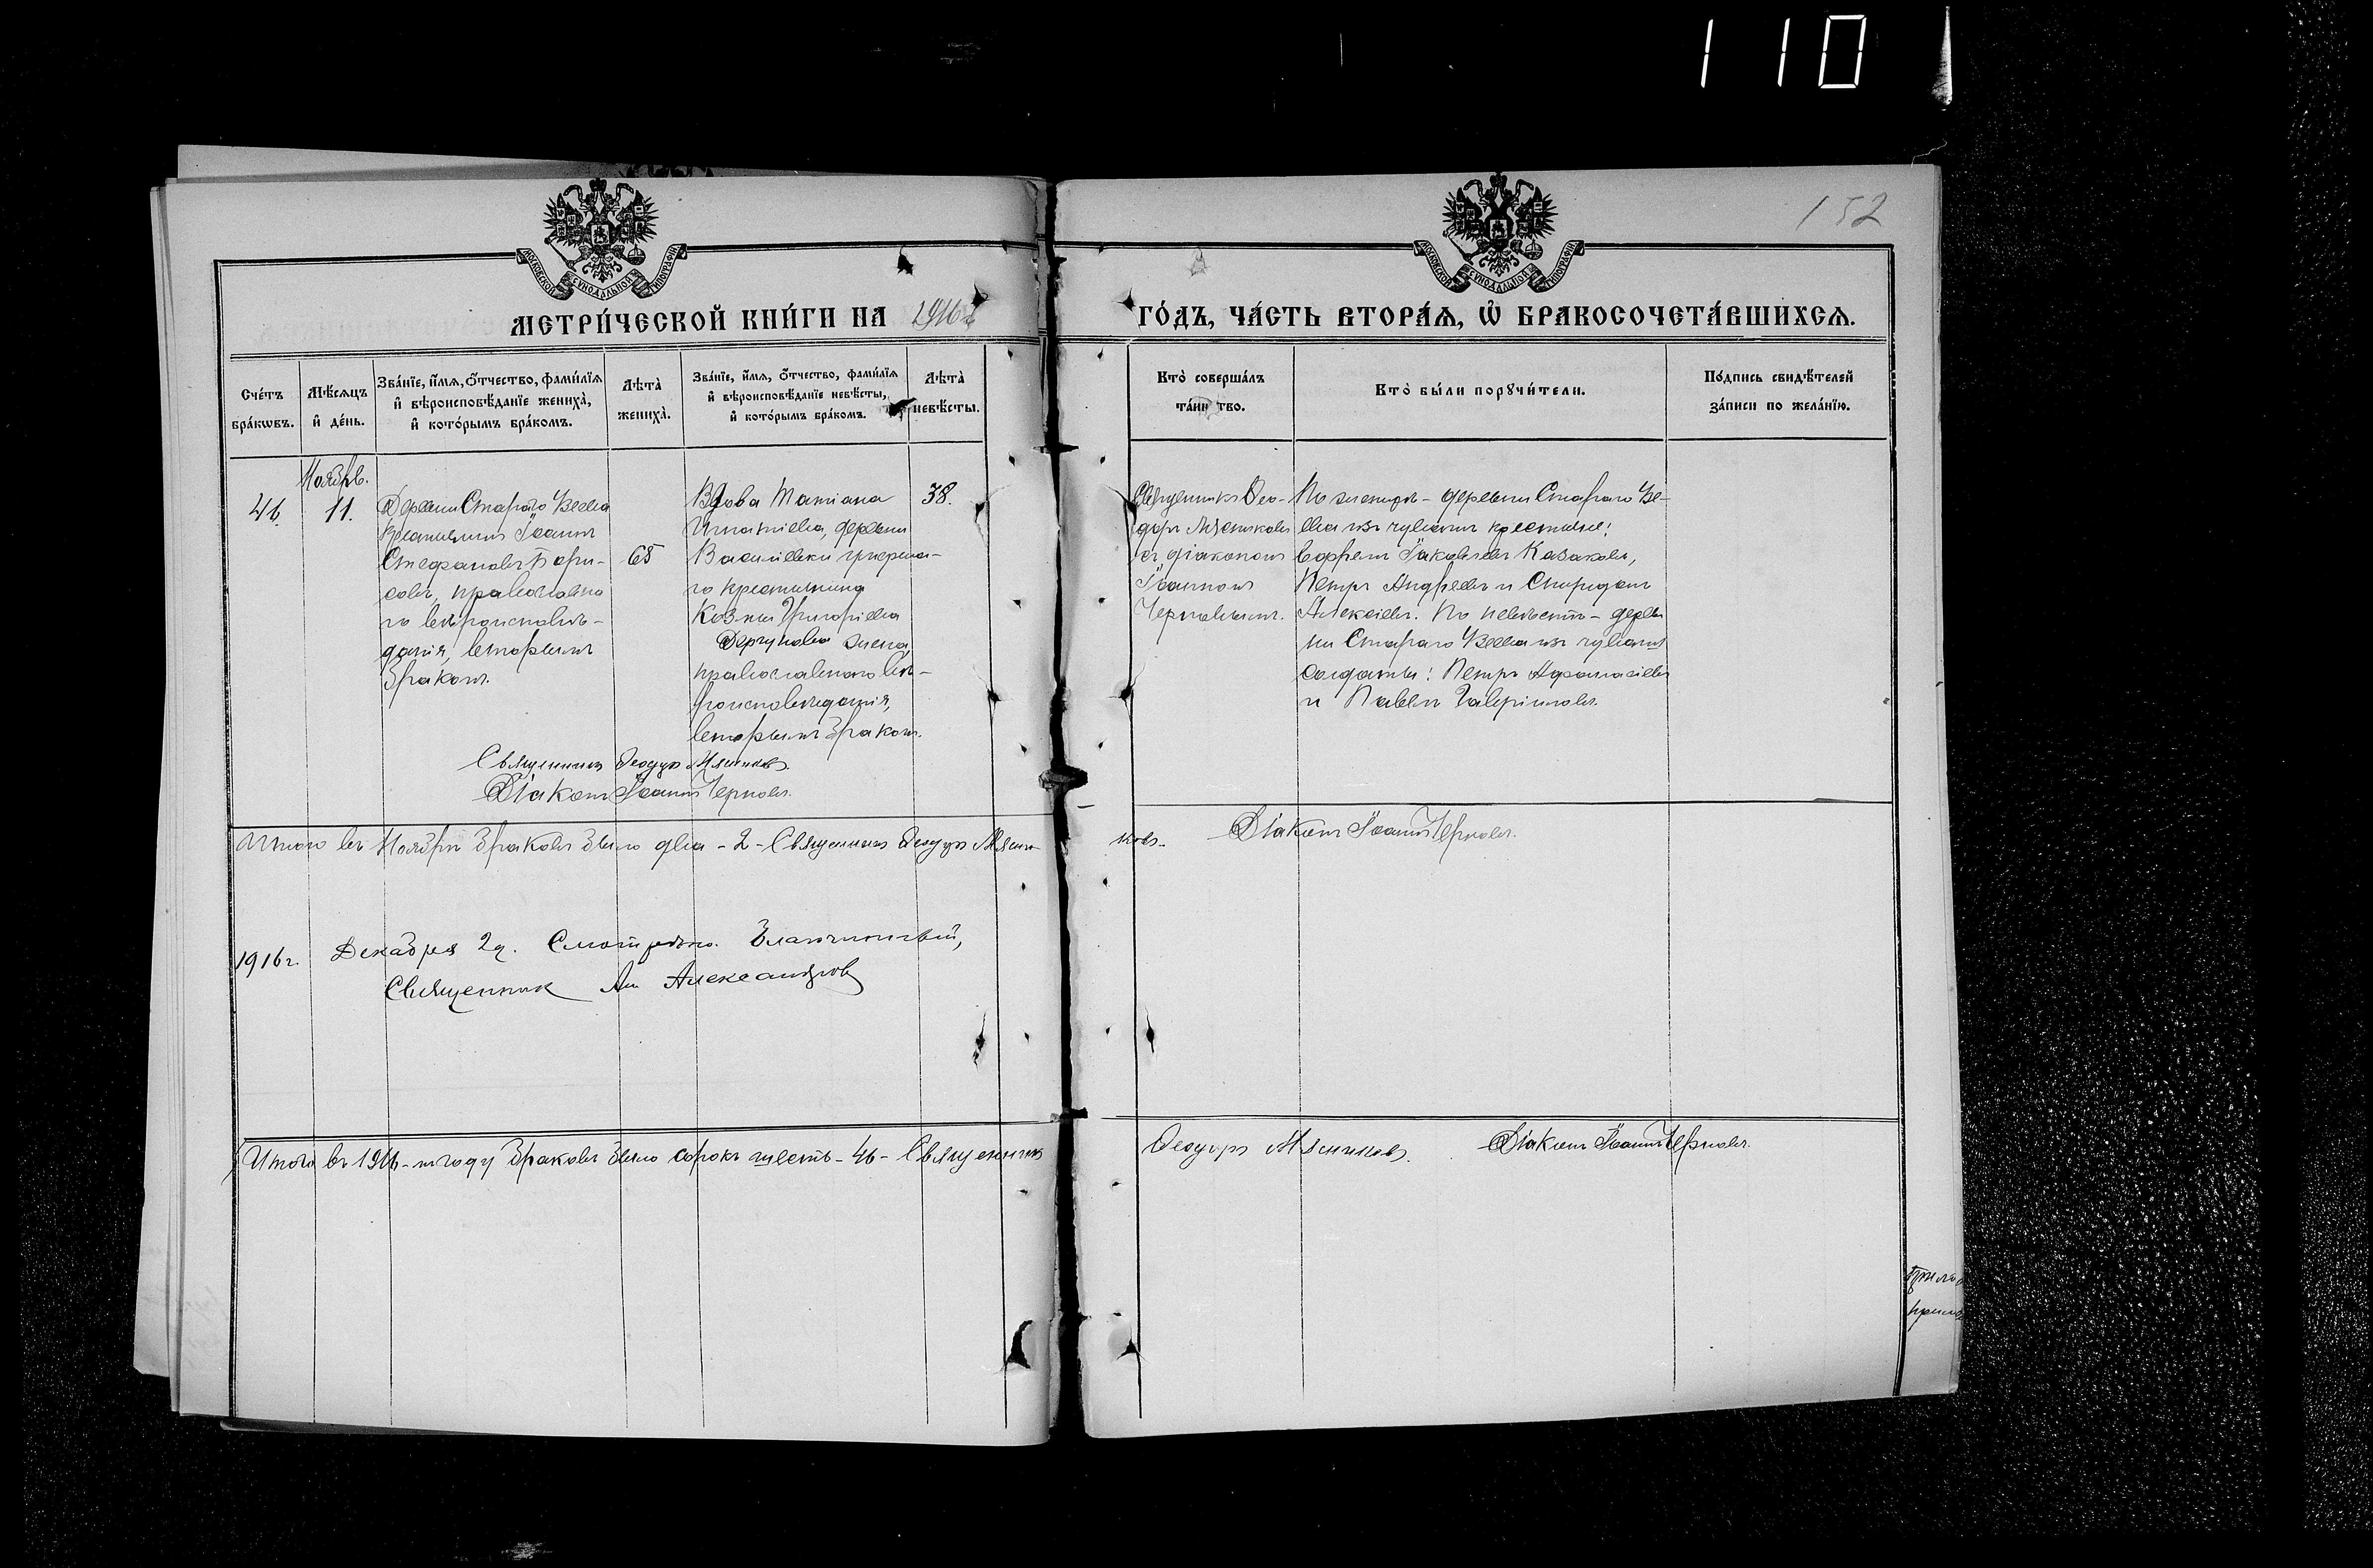 110
152
МОСКОВСКОЙ СѴНОДАЛЬНОЙ ТИПОГРАФІИ
МОСКОВСКОЙ СѴНОДАЛЬНОЙ ТИПОГРАФІИ
МЕТРИ́ЧЕСКОЙ КНИ́ГИ НА 1916й
ГО́ДЪ, ЧА́СТЬ ВТОРА́Ѧ, Ѡ҆ БРАКОСОЧЕТА́ВШИХСѦ.
Сче́тъ бра́кѡвъ.
Мѣ́сѧцъ и҆ де́нь.
Зва́нїе, и҆́мѧ, ѻ҆́тчество, фами́лїѧ
и҆ вѣроисповѣ́данїе жениха̀,
и҆ кото́рымъ бра́комъ.
Лѣта̀ жениха̀.
Зва́нїе, и҆́мѧ, ѻ҆́тчество, фами́лїѧ
и҆ вѣроисповѣ́данїе невѣ́сты,
и҆ кото́рымъ бра́комъ.
Лѣта̀ невѣ́сты.
Кто̀ соверша́лъ
та́ин тво.
Кто̀ бы́ли порꙋчи́тели.
По́дпись свидѣ́телей
за́писи по жела́нїю.
46.
Ноябрь.
11.
Деревни Стараго Узеева
крестьянинъ Іоаннъ
Стефановъ Бори-
совъ, православна
го вѣроисповѣ-
данія, вторымъ
бракомъ.
68
Вдова Татіана
Игнатіева, деревни
Васильевки умерша-
го крестьянина
Козмы Григоріева
Дергунова жена,
православнаго вѣ-
роисповѣданія,
вторымъ бракомъ.
38.
Священникъ Ѳео-
доръ Мясниковъ
съ діакономъ
Іоанномъ
Черновымъ.
По женихѣ - деревни Стараго Узе-
ева изъ чувашъ крестьяне:
Ефремъ Іаковлевъ Казаковъ,
Петръ Андреевъ и Спиридонъ
Алексѣевъ. По невѣстѣ - дерев
ни Стараго Узеева изъ чувашъ
солдаты: Петръ Афанасіевъ
и Павелъ Гавріиловъ.
Священникъ Ѳеодоръ Мясниковъ.
Діаконъ Іоаннъ Черновъ.
Итого въ Ноябрѣ браковъ было два - 2 - Священникъ Ѳеодоръ Мясни-
ковъ. Діаконъ Іоаннъ Черновъ.
1916 г. Декабря 2 д. Смотрѣно. Благочинный,
Священник Ал Александров
Итого въ 1916-мъ году браковъ было сорокъ шесть - 46 - Священникъ
Ѳеодоръ Мясниковъ. Діаконъ Іоаннъ Черновъ.